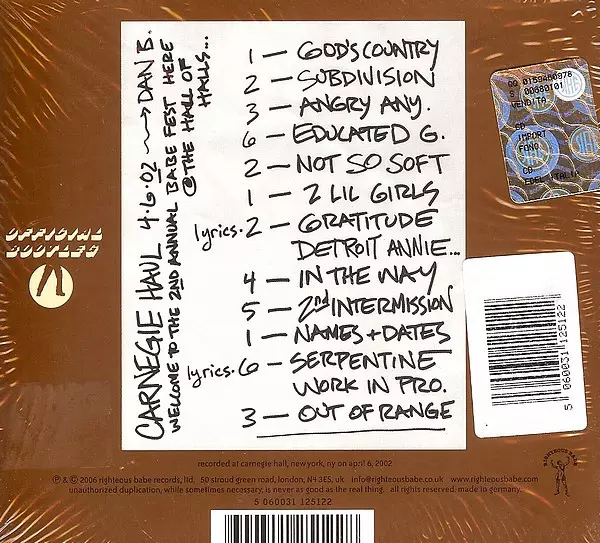 CARNEGIE HAUL 4.6.02 → DAN B.
WELCOME TO THE 2ND ANNUAL BABE FEST HERE
@ THE HALL OF
HALLS...
1 — GOD'S COUNTRY
2 — SUBDIVISION
3 — ANGRY ANY.
6 — EDUCATED G.
2 — NOT SO SOFT
1 — 2 LIL GIRLS
lyrics. 2 — GRATITUDE
DETROIT ANNIE...
4 — IN THE WAY
5 — 2nd INTERMISSION
1 — NAMES + DATES
lyrics. 6 — SERPENTINE
WORK IN PRO.
3 — OUT OF RANGE
OFFICIAL
BOOTLEG
VENDITA
CD
IMPORT
FONO.
CD
ITALIA
5 060031 125122
RIGHTEOUS BABE
recorded at carnegie hall, new york, ny on april 6, 2002
℗ & © 2006 righteous babe records, ltd. 50 stroud green road, london, N4 3ES, uk info@righteousbabe.co.uk www.righteousbabe.com
unauthorized duplication, while sometimes necessary, is never as good as the real thing. all rights reserved. made in germany.
5 060031 125122